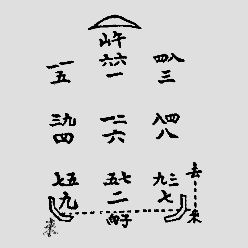 山午
一一 六六 四八
五 一 三
三九 一二 八四
四 六 八
去
七五 五七 九三
九 二 七
來
向子
來